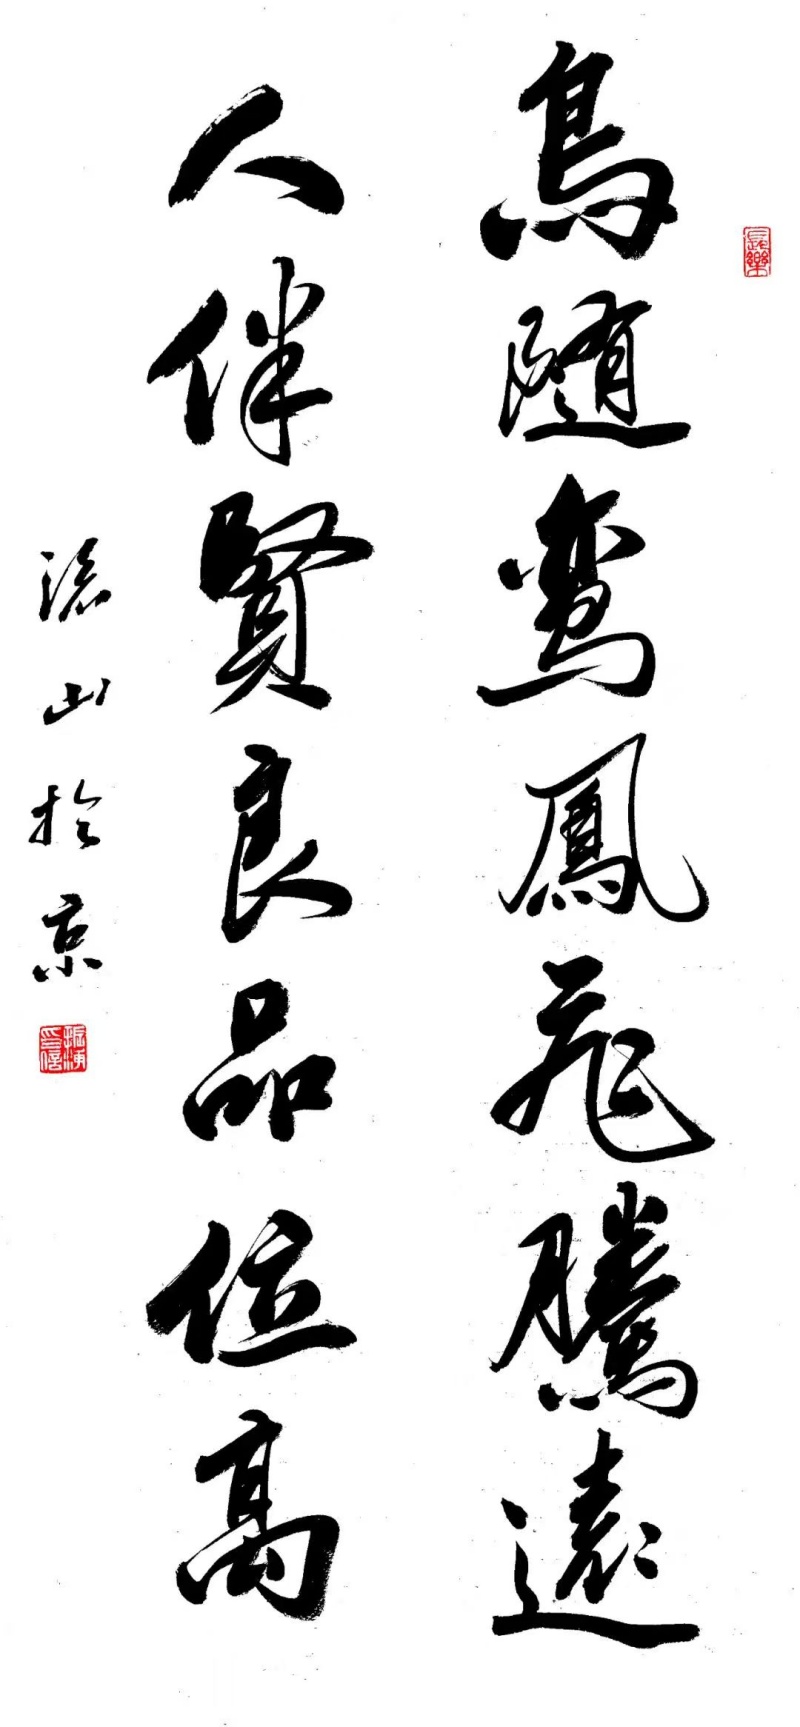 長樂
鳥随鸞鳳飛騰遠
人伴賢良品位高
山於京